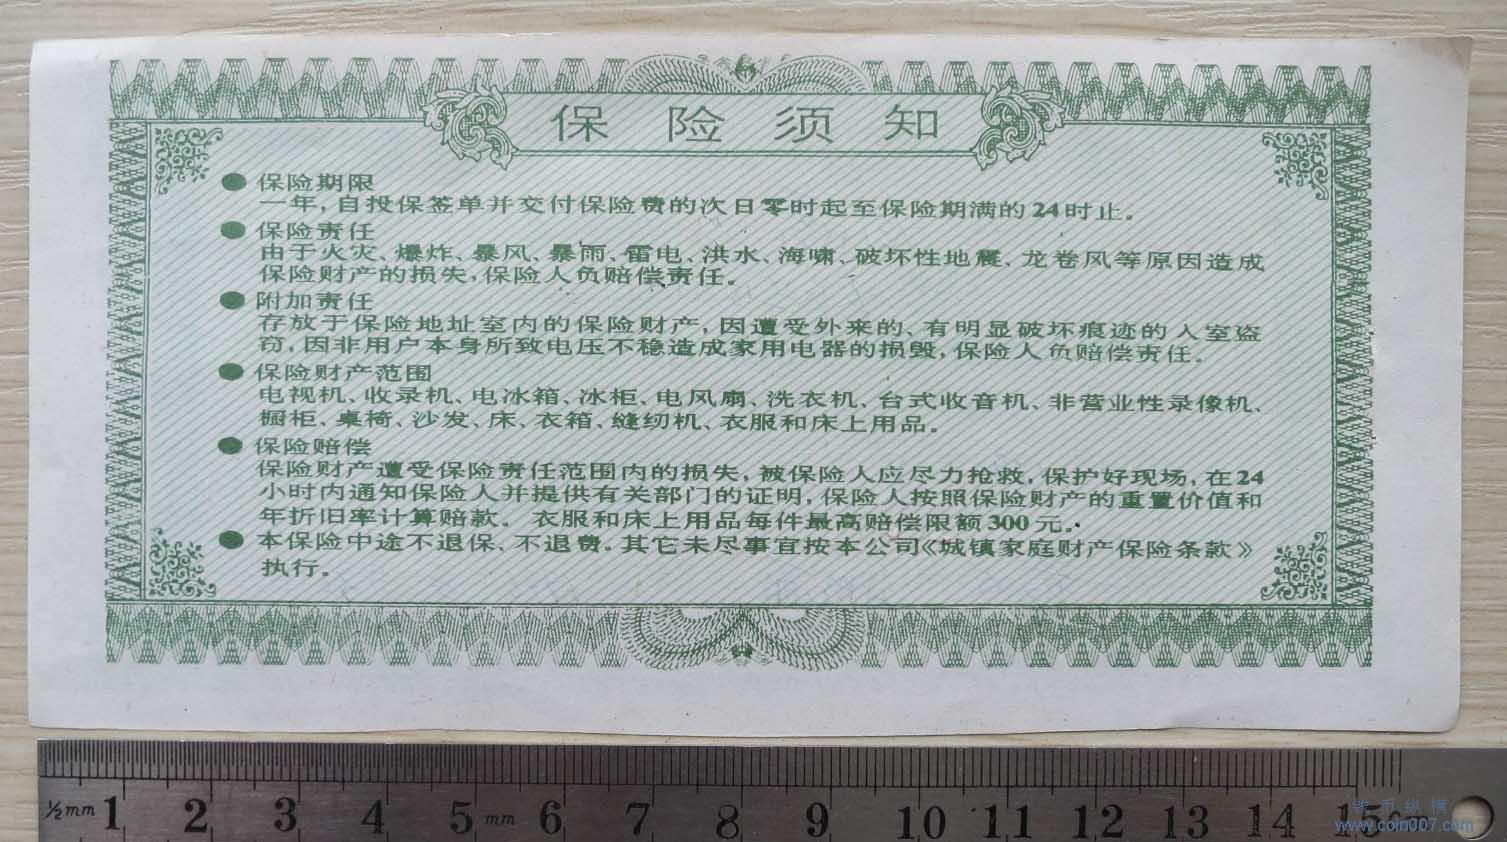 保险须知
● 保险期限
一年，自投保签单并交付保险费的次日零时起至保险期满的24时止。
● 保险责任
由于火灾、爆炸、暴风、暴雨、雷电、洪水、海啸、破坏性地震、龙卷风等原因造成
保险财产的损失，保险人负赔偿责任。
● 附加责任
存放于保险地址室内的保险财产，因遭受外来的、有明显破坏痕迹的入室盗
窃，因非用户本身所致电压不稳造成家用电器的损毁，保险人负赔偿责任。
● 保险财产范围
电视机、收录机、电冰箱、冰柜、电风扇、洗衣机、台式收音机、非营业性录像机、
橱柜、桌椅、沙发、床、衣箱、缝纫机、衣服和床上用品。
● 保险赔偿
保险财产遭受保险责任范围内的损失，被保险人应尽力抢救，保护好现场，在24
小时内通知保险人并提供有关部门的证明，保险人按照保险财产的重置价值和
年折旧率计算赔款。衣服和床上用品每件最高赔偿限额300元。
● 本保险中途不退保、不退费。其它未尽事宜按本公司《城镇家庭财产保险条款》
执行。
½mm 1 2 3 4 5 mm 6 7 8 9 10 11 12 13 14 15
钱币纵横
www.coin007.com